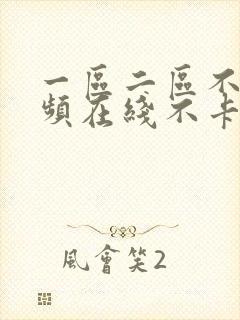 一區二區不
頻在綫不卡
風會笑2